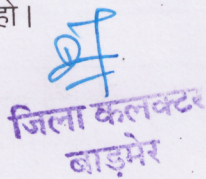 हो।
जिला कलक्टर
बाड़मेर